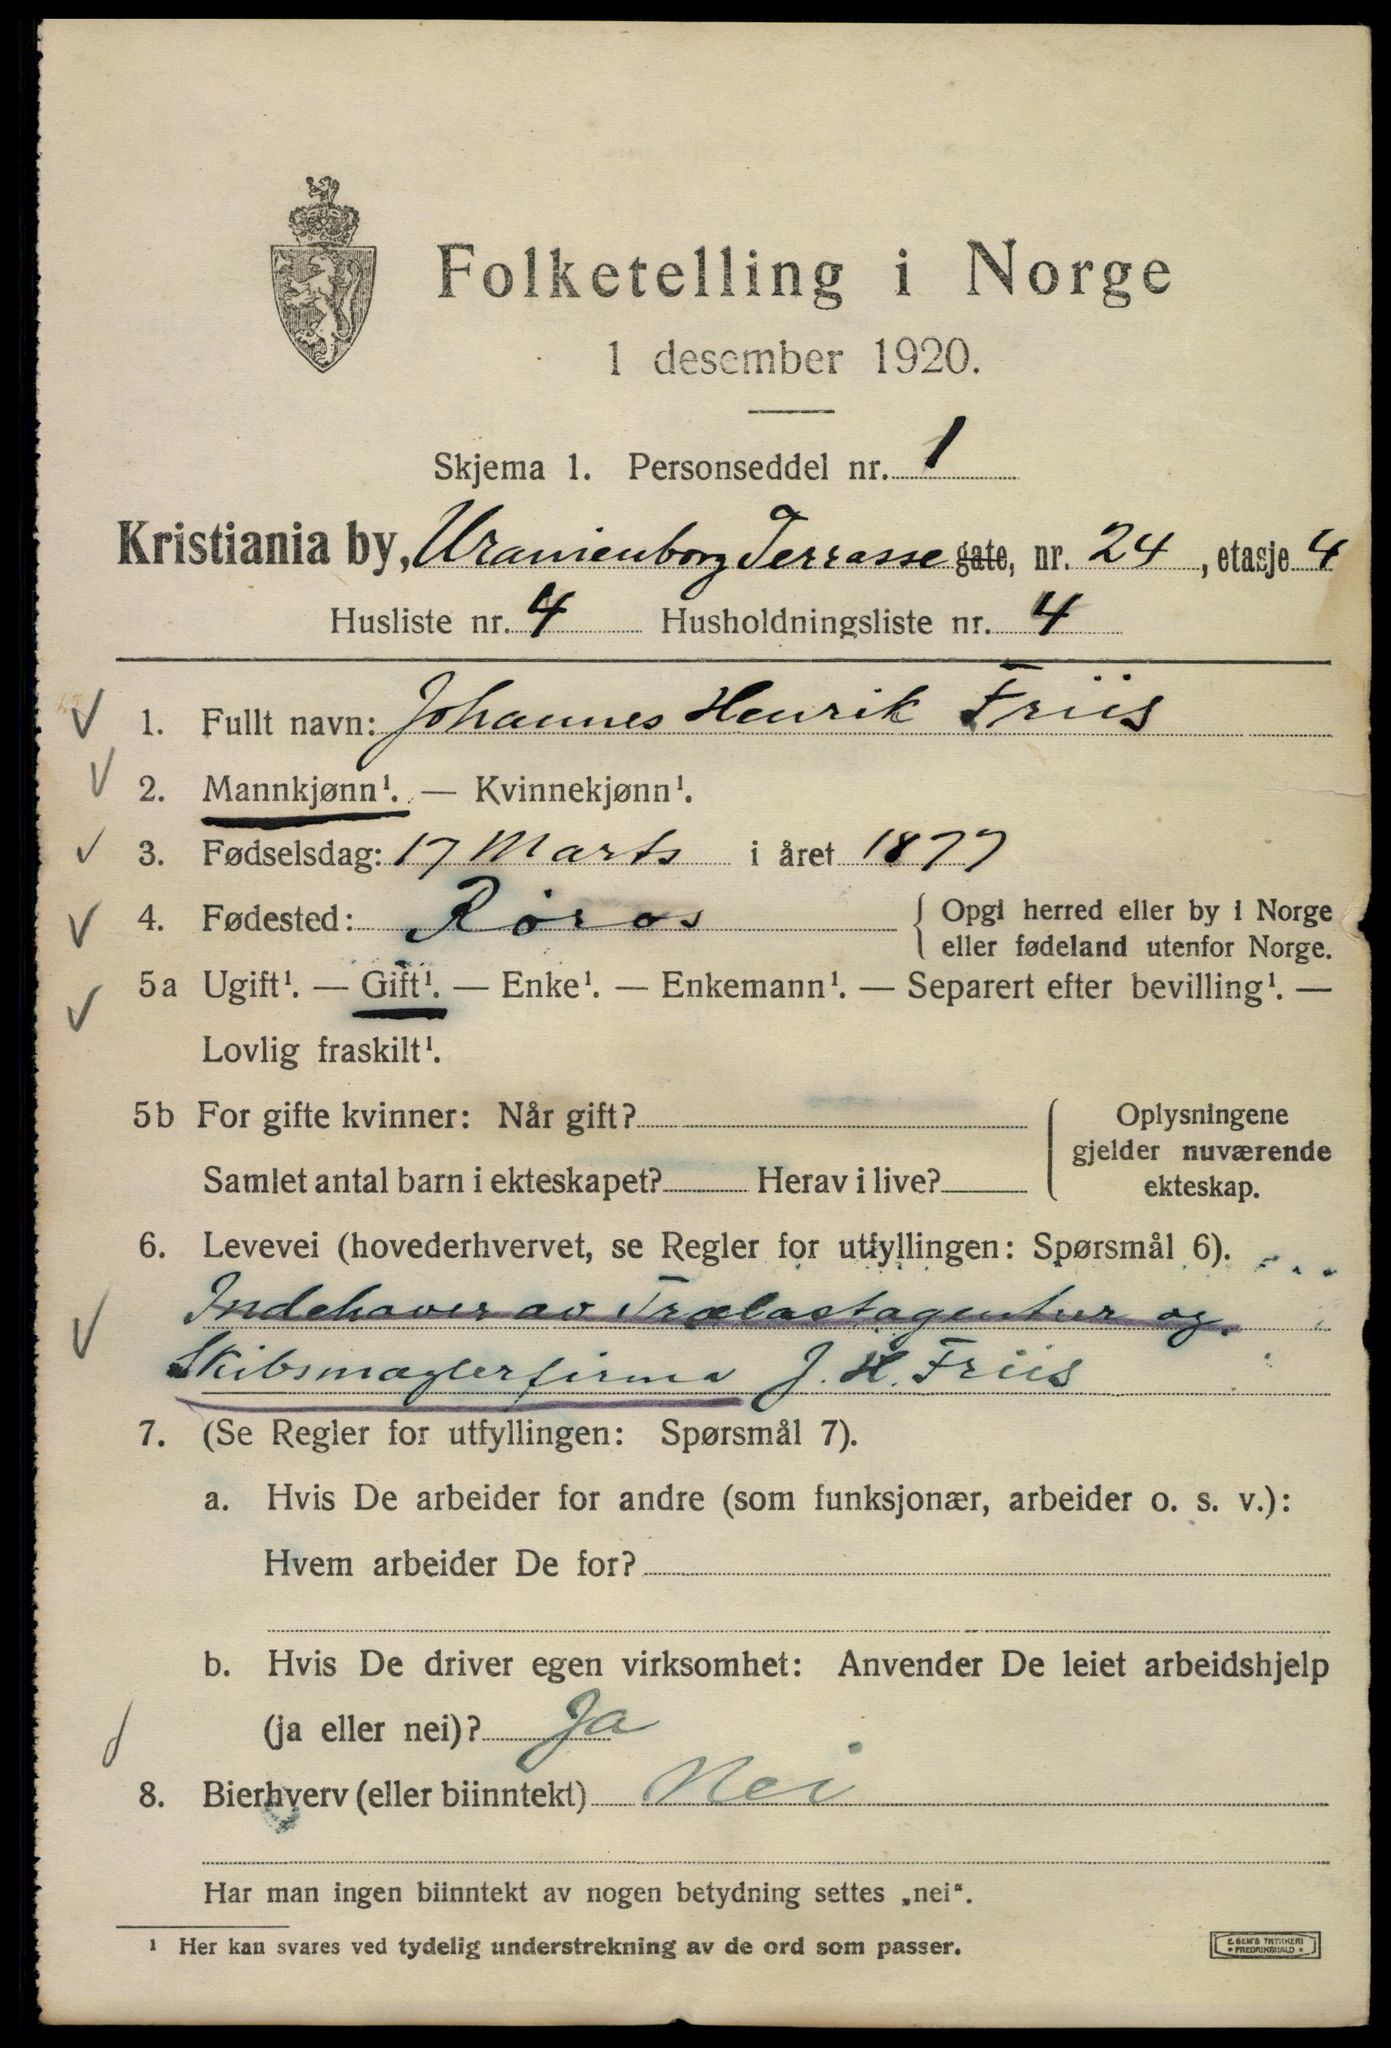 Folketelling i Norge
1 desember 1920.
Skjema 1. Personseddel nr. 1
Kristiania by, Uranienborg Terrasse gate, nr. 24, etasje 4
Husliste nr. 4 Husholdningsliste nr. 4
1. Fullt navn: Johannes Henrik Friis
2. Mannkjønn¹. — Kvinnekjønn¹.
3. Fødselsdag: 17 Marts i året 1877
4. Fødested: Røros { Opgi herred eller by i Norge
eller fødeland utenfor Norge.
5a Ugift¹. — Gift¹. — Enke¹. — Enkemann¹. — Separert efter bevilling¹. —
Lovlig fraskilt¹.
5b For gifte kvinner: Når gift? Oplysningene
gjelder nuværende
Samlet antal barn i ekteskapet? Herav i live? ekteskap.
6. Levevei (hovederhvervet, se Regler for utfyllingen: Spørsmål 6).
Indehaver av Trælastagentur og
Skibsmæglerfirma J. H. Friis
7. (Se Regler for utfyllingen: Spørsmål 7).
a. Hvis De arbeider for andre (som funksjonær, arbeider o. s. v.):
Hvem arbeider De for?
b. Hvis De driver egen virksomhet: Anvender De leiet arbeidshjelp
(ja eller nei)? Ja
8. Bierhverv (eller biinntekt) Nei
Har man ingen biinntekt av nogen betydning settes „nei“.
¹ Her kan svares ved tydelig understrekning av de ord som passer.
E. SEM'S TRYKKERI
FREDRIKSHALD